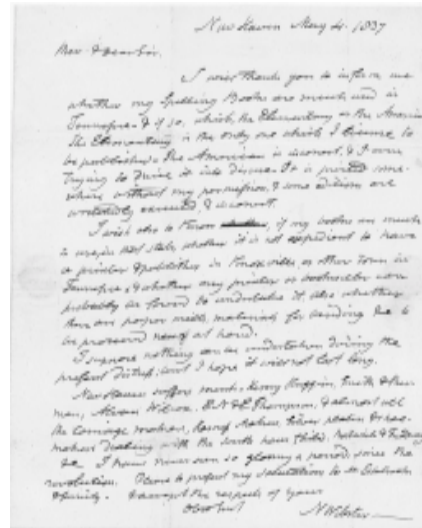 New Haven May 4. 1837
Rev. & Dear Sir,
I will thank you to inform me
whether my Spelling Books are much used in
Tennessee & if so, which, the Elementary or the American
The Elementary is the only one which I license to
be published. The American is incorrect, & I am
trying to drive it into disuse. It is printed some
where without my permission, & some editions are
wretchedly executed, & incorrect.
I wish also to know if my books are much
used in that state, whether it is not expedient to have
a printer & publisher in Knoxville, or other town in
Tennessee, & whether any printer or bookseller can
probably be found to undertake it, also whether
there are paper mills, materials for binding &c to
be procured near at hand.
I suppose nothing can be undertaken during the
present distress, but I hope it will not last long.
New Haven suffers much. Henry Huggins, Smith &
man, Alvan Wilcox, Thompson, & almost all
the carriage makers,
makers dealing with the south have failed,
&c I have never seen so gloomy a period, since the
revolution. Please to present my salutations to
& family. & accept the respects of your
Obed Servt
N Webster